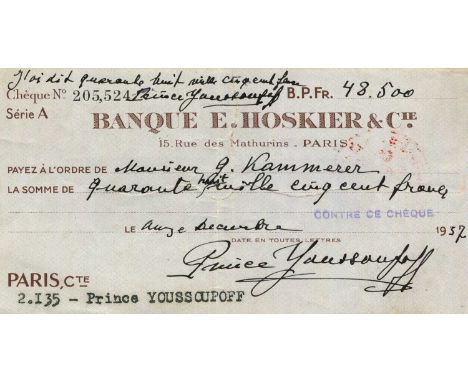 J'ai dit quarante huit mille cinq cent fra
Chèque No 205,524 Prince Youssoupoff B.P.FR. 48.500
Série A
BANQUE E. HOSKIER & CIE
15. Rue des Mathurins . PARIS
PAYEZ À L'ORDRE DE Monsieur G Kammerer
huit
LA SOMME DE quarante mille cinq cent francs
CONTRE CE CHÈQUE
LE onze Decembre 1937
DATE EN TOUTES LETTRES
Prince Youssoupoff
PARIS, CTE
2.I35 - Prince YOUSSOUPOFF